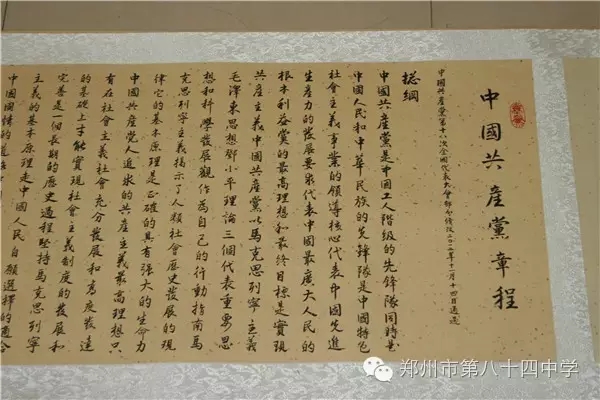 中國共產黨章程
中國共產黨第十八次全國代表大會部分修改二〇一二年十一月十四日通過
總綱
中國共產黨是中國工人階級的先鋒隊同時是
中國人民和中華民族的先鋒隊是中國特色
社會主義事業的領導核心代表中國先進
生產力的發展要求代表中國最廣大人民的
根本利益黨的最高理想和最終目標是實現
共產主義中國共產黨以馬克思列寧主義
毛澤東思想鄧小平理論三個代表重要思
想和科學發展觀作為自己的行動指南馬
克思列寧主義揭示了人類社會歷史發展的規
律它的基本原理是正確的具有強大的生命力
中國共產黨人追求的共產主義最高理想只
有在社會主義社會充分發展和高度發達
的基礎上才能實現社會主義制度的發展和
完善是一個長期的歷史過程堅持馬克思列寧
主義的基本原理走中國人民自願選擇的適合
中國國情的道路
郑州市第八十四中学